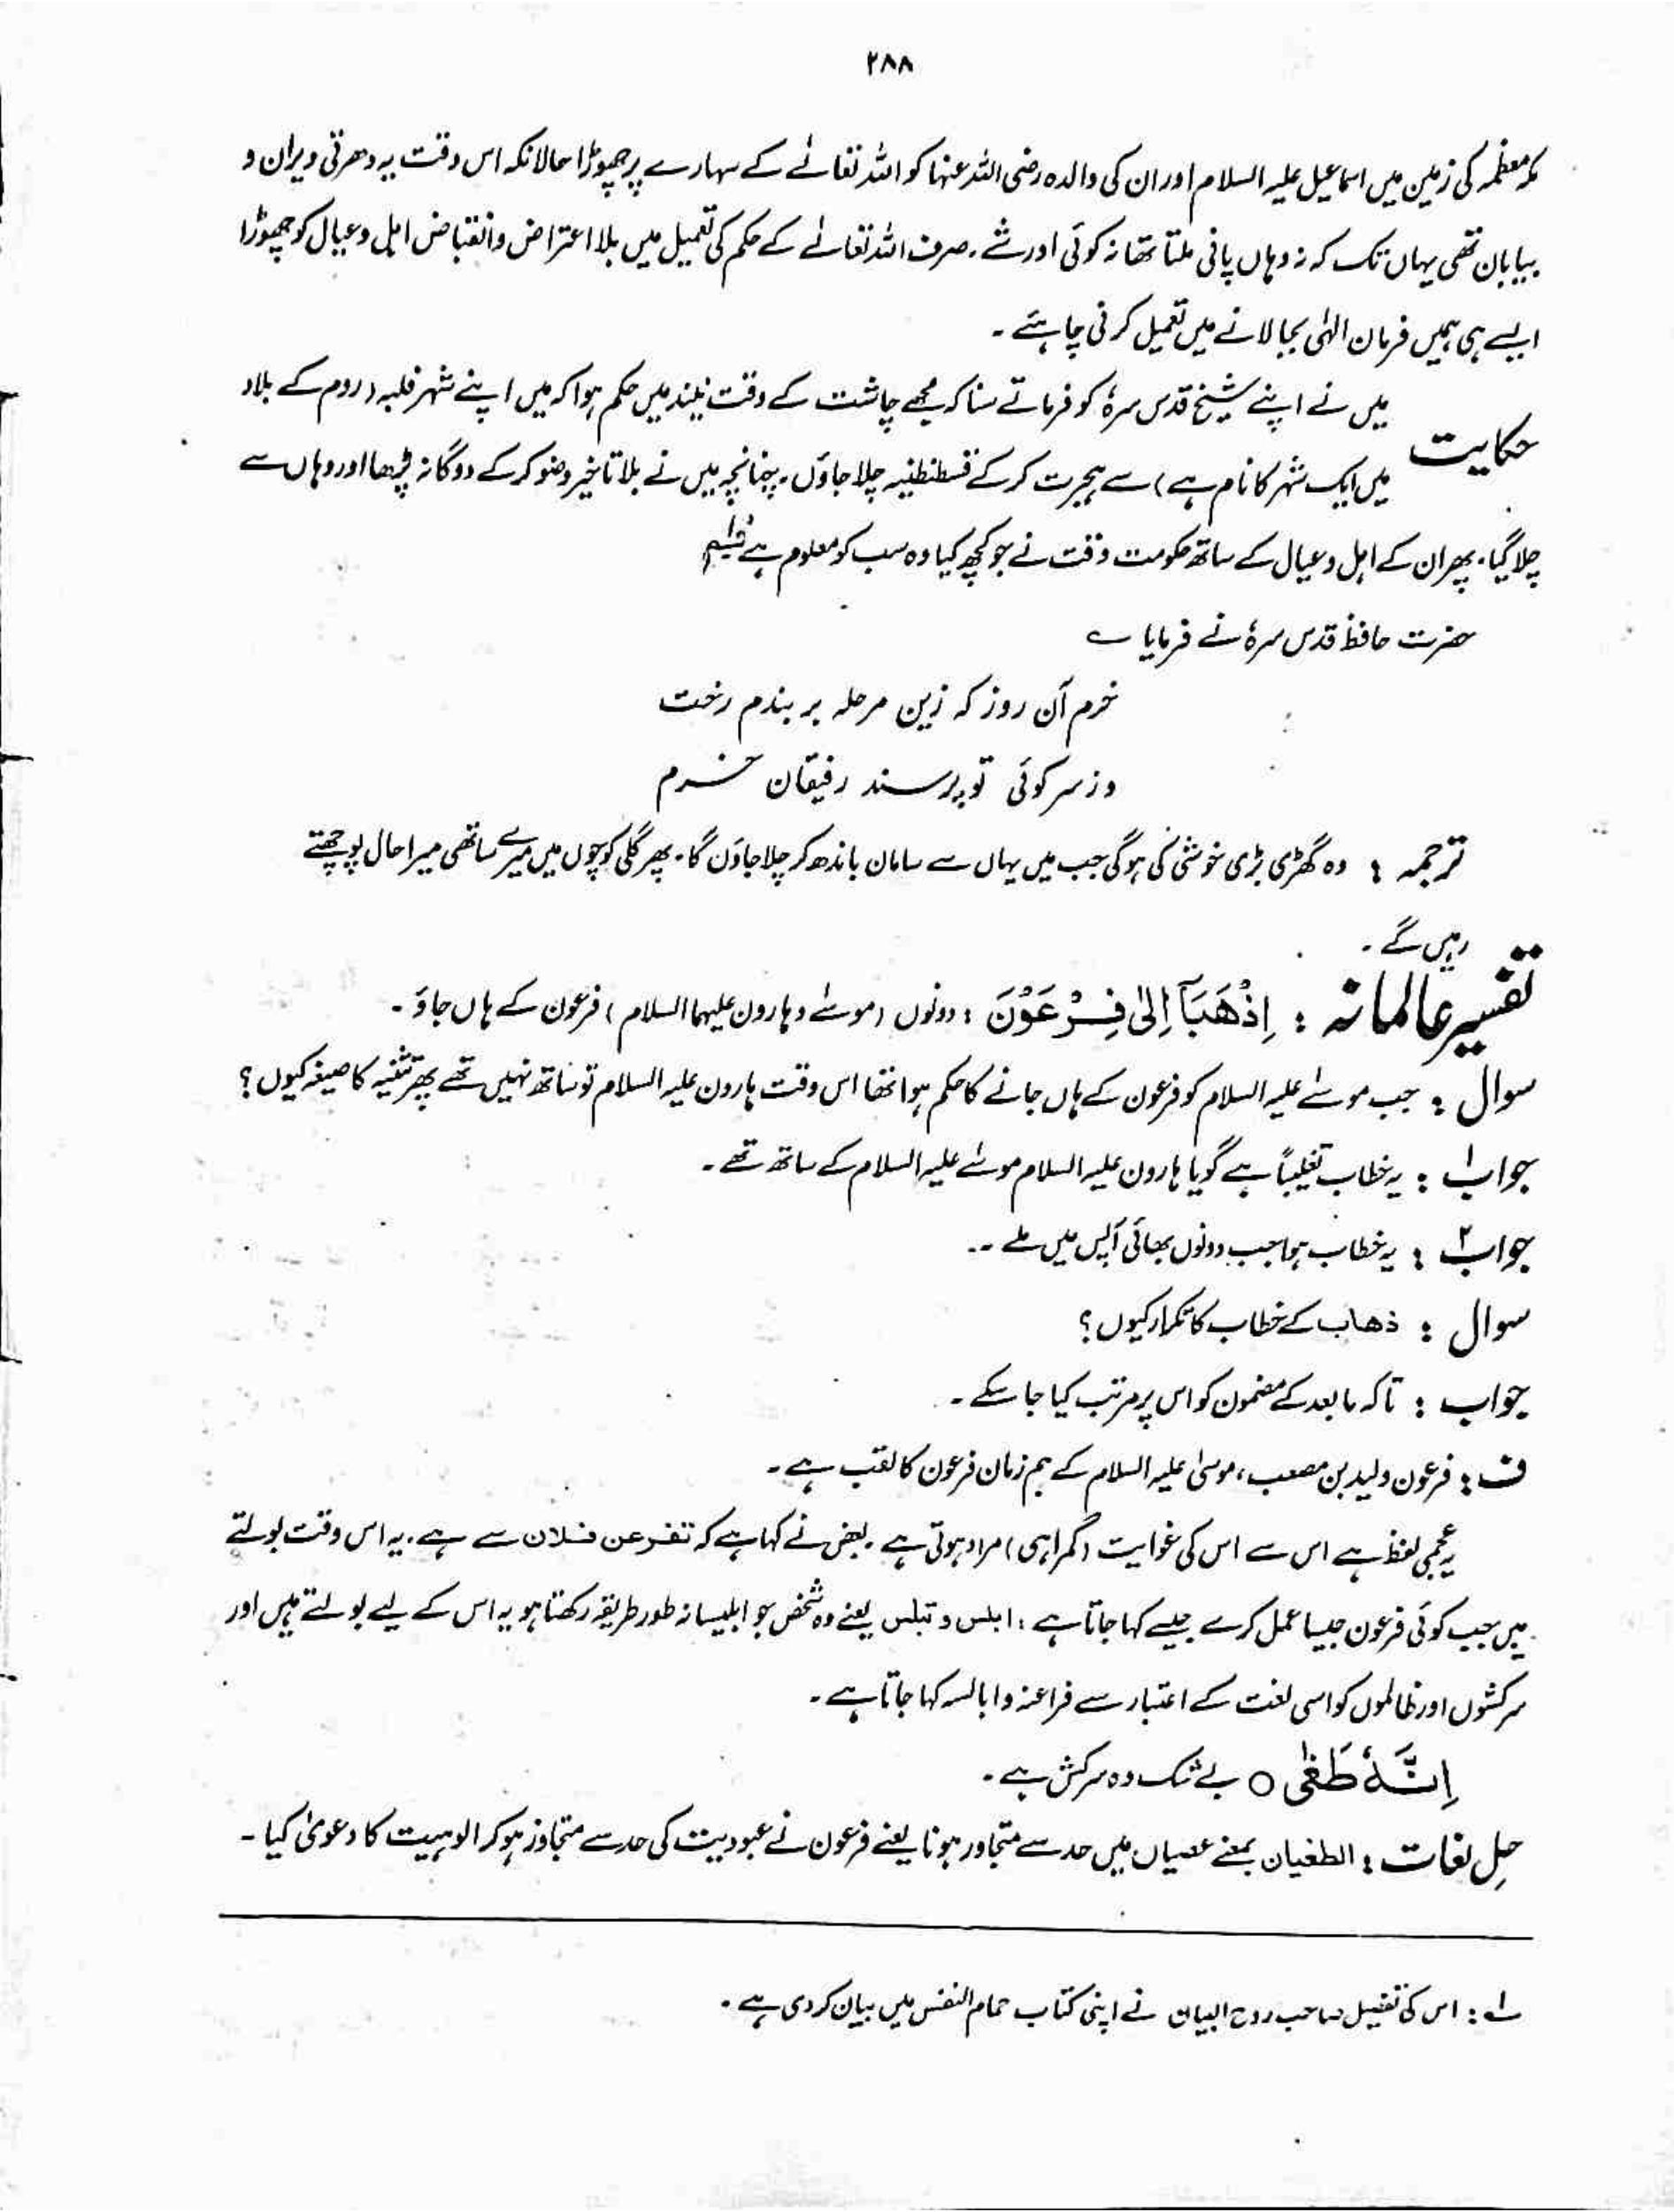 ۲۸۸
مکہ معظمہ کی زمین میں اسماعیل علیہ السلام اور ان کی والدہ رضی اللہ عنہا کو اللہ تعالےٰ کے سہارے پر چھوڑا حالانکہ اس وقت یہ دھرتی ویران و
بیابان تھی یہاں تک کہ نہ وہاں پانی ملتا تھا نہ کوئی اور شے۔ صرف اللہ تعالےٰ کے حکم کی تعمیل میں بلا اعتراض و انقباض اہل و عیال کو چھوڑا
ایسے ہی ہمیں فرمان الہٰی بجا لانے میں تعمیل کرنی چاہئے ۔
حکایت میں نے اپنے شیخ قدس سرہٗ کو فرماتے سنا کہ مجھے چاشت کے وقت نیند میں حکم ہوا کہ میں اپنے شہر فلبہ (روم کے بلاد
میں ایک شہر کا نام ہے) سے ہجرت کر کے قسطنطنیہ چلا جاؤں۔ چنانچہ میں نے بلا تاخیر وضو کر کے دوگانہ پڑھا اور وہاں سے
چلا گیا۔ پھر ان کے اہل و عیال کے ساتھ حکومت وقت نے جو کچھ کیا وہ سب کو معلوم ہے
حضرت حافظ قدس سرہٗ نے فرمایا ؎
خرم آن روز کہ زین مرحلہ بر بندم رخت
وز سر کوئی تو پرسند رفیقان خبرم
ترجمہ : وہ گھڑی بڑی خوشی کی ہوگی جب میں یہاں سے سامان باندھ کر چلا جاؤں گا۔ پھر گلی کوچوں میں میرے ساتھی میرا حال پوچھتے
رہیں گے ۔
تفسیر عالمانہ : اِذْهَبَآ اِلٰى فِرْعَوْنَ : دونوں (موسےٰ و ہارون علیہما السلام) فرعون کے ہاں جاؤ ۔
سوال : جب موسےٰ علیہ السلام کو فرعون کے ہاں جانے کا حکم ہوا تھا اس وقت ہارون علیہ السلام تو ساتھ نہیں تھے پھر تثنیہ کا صیغہ کیوں ؟
جواب۱ : یہ خطاب تغلیباً ہے گویا ہارون علیہ السلام موسےٰ علیہ السلام کے ساتھ تھے ۔
جواب۲ : یہ خطاب ہوا جب دونوں بھائی آپس میں ملے ۔۔
سوال : ذھاب کے خطاب کا تکرار کیوں ؟
جواب : تاکہ مابعد کے مضمون کو اس پر مرتب کیا جا سکے ۔
ف : فرعون ولید بن مصعب، موسیٰ علیہ السلام کے ہم زمان فرعون کا لقب ہے ۔
یہ عجمی لفظ ہے اس سے اس کی غوایت (گمراہی) مراد ہوتی ہے ۔ بعض نے کہا ہے کہ تفرعن فلان سے ہے۔ یہ اس وقت بولتے
میں جب کوئی فرعون جیسا عمل کرے جیسے کہا جاتا ہے : ابلس و تبلس یعنے وہ شخص جو ابلیسانہ طور طریقہ رکھتا ہو یہ اس کے لیے بولتے ہیں اور
سرکشوں اور ظالموں کو اسی لغت کے اعتبار سے فراعنہ و ابالسہ کہا جاتا ہے ۔
اِنَّهٗ طَغٰى ○ بے شک وہ سرکش ہے ۔
حلِ لغات : الطغیان بمعنے عصیاں میں حد سے متجاوز ہونا یعنے فرعون نے عبودیت کی حد سے متجاوز ہو کر الوہیت کا دعویٰ کیا ۔
لہ : اس کی تفصیل صاحب روح البیان نے اپنی کتاب تمام النفس میں بیان کر دی ہے ۔